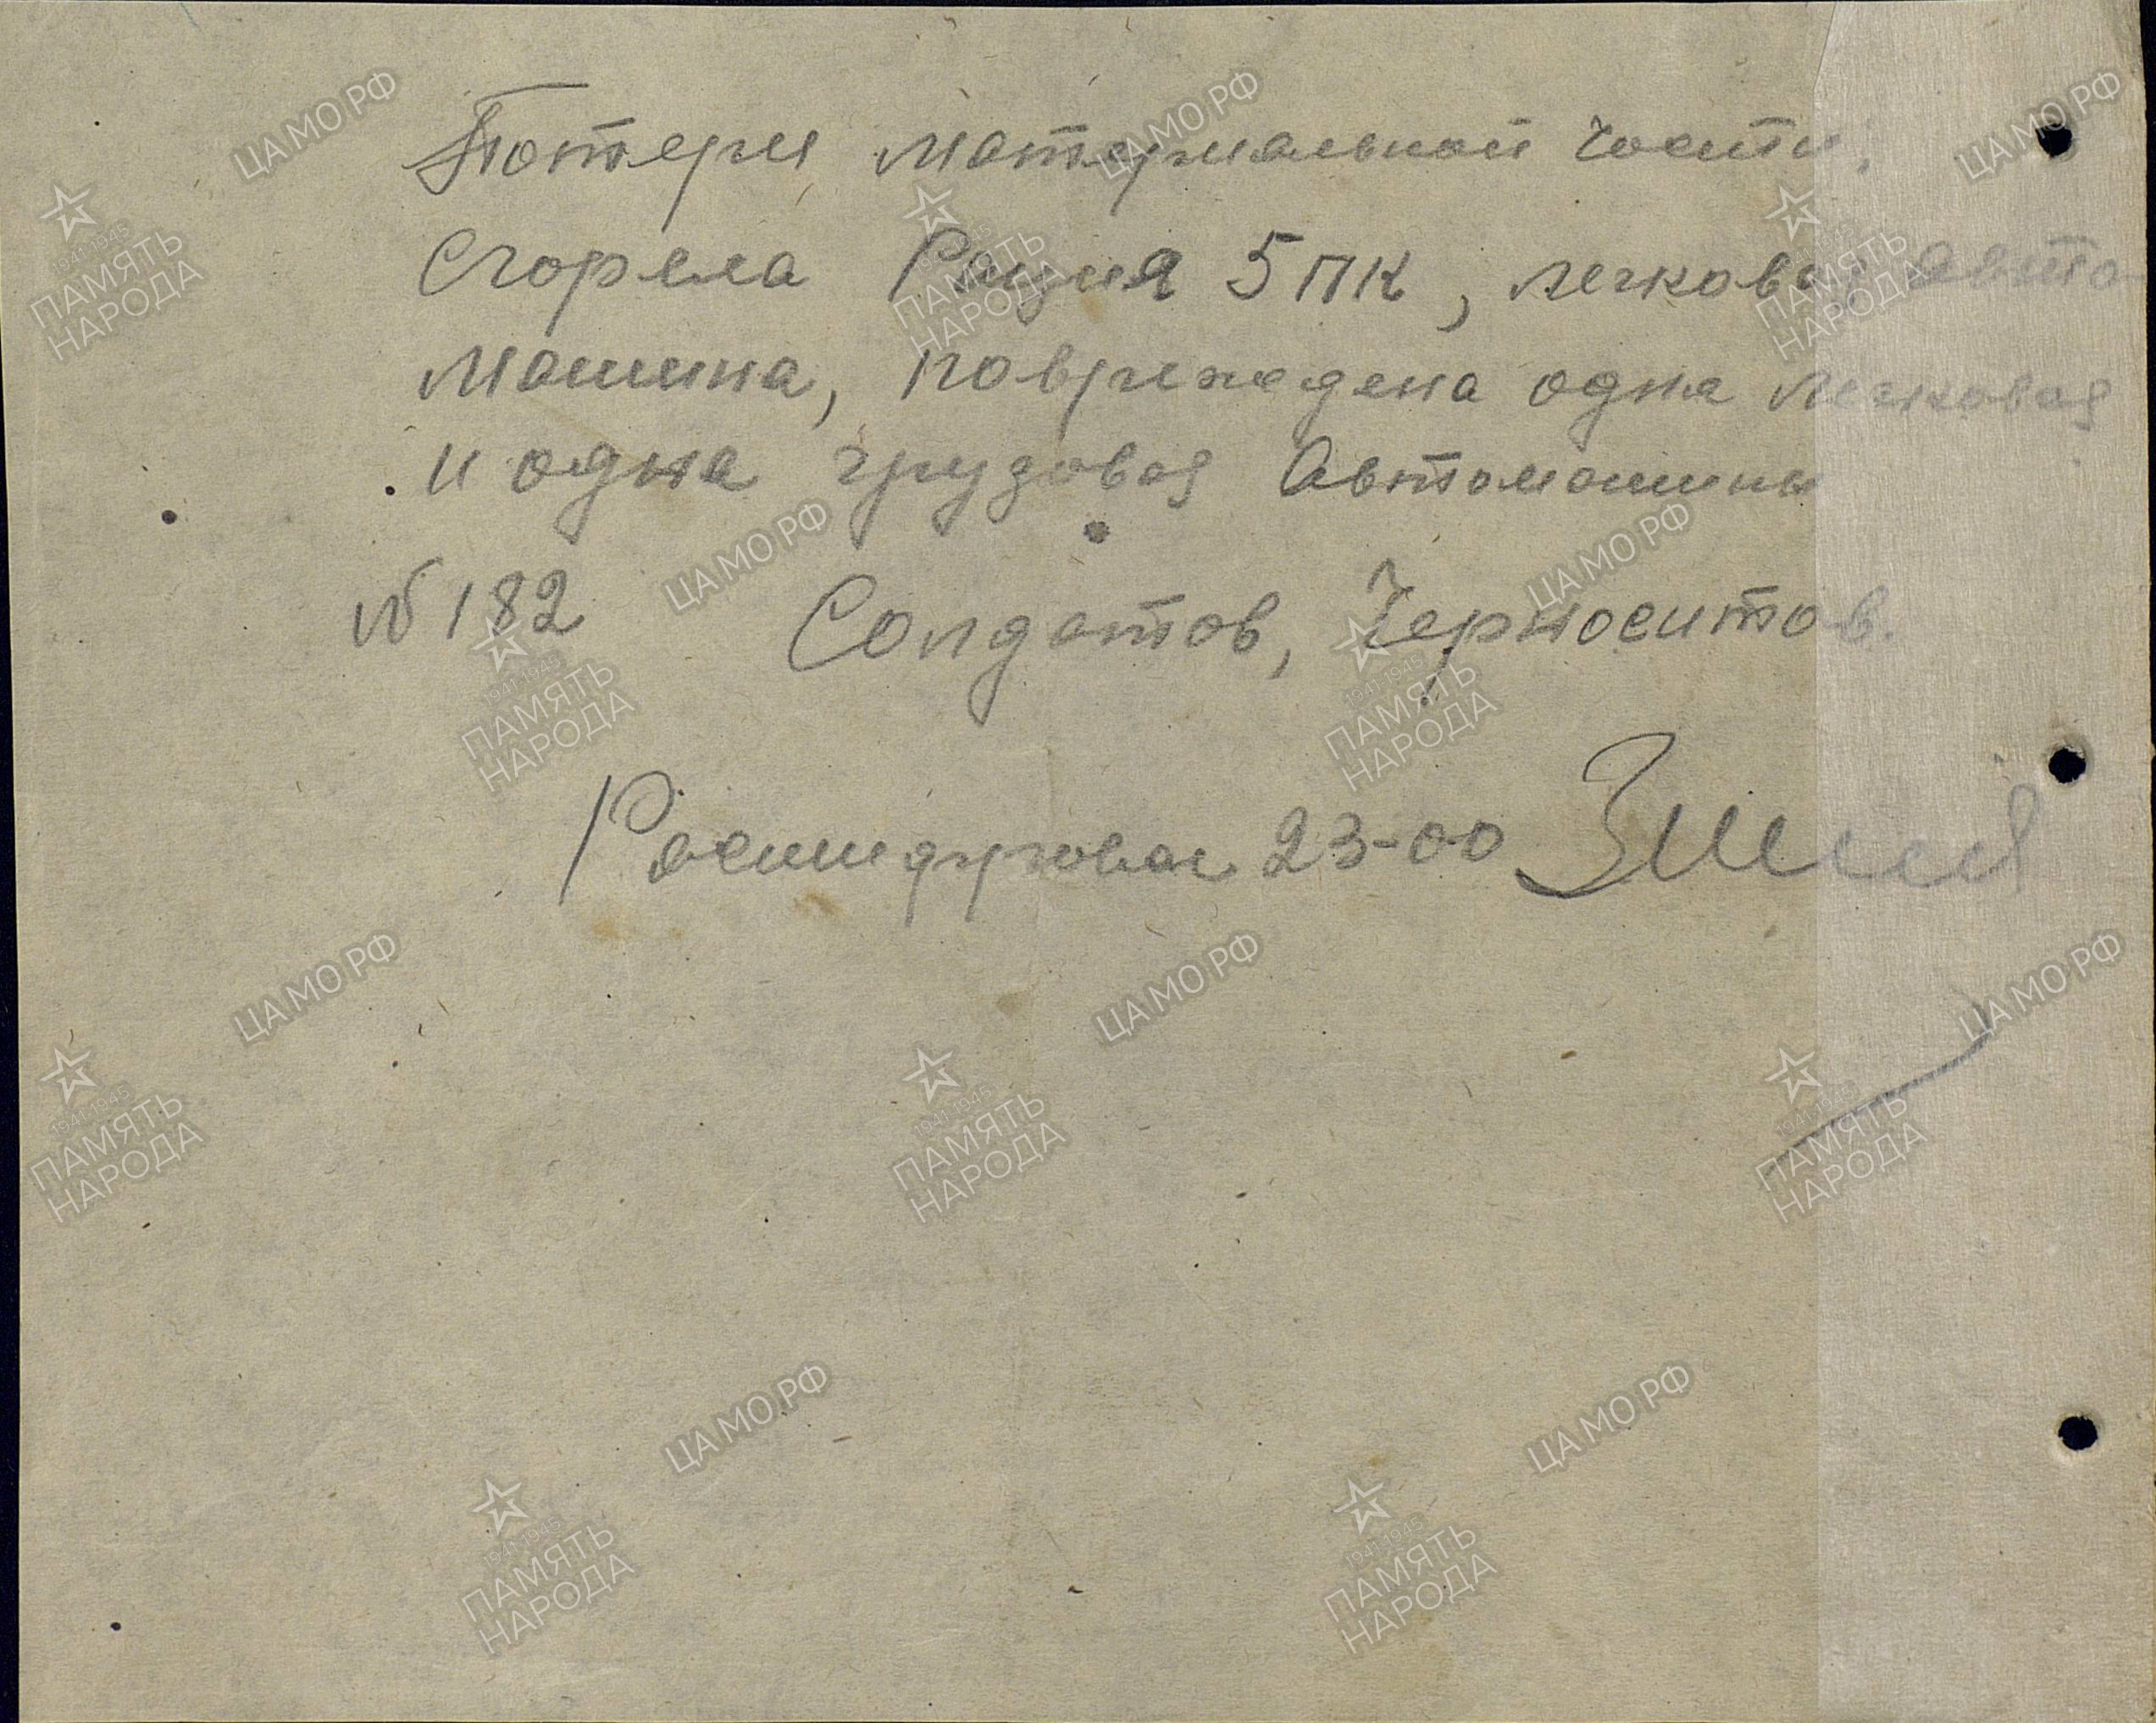 Потери материальной части.
Сгорела Рация 5ПК, легковая авто
машина, повреждена одна легковая
и одна грузовая автомашины
№182 Солдатов, Черноситов.
Расшифровал 23-00
ЦАМО РФ
1941-1945
ПАМЯТЬ
НАРОДА